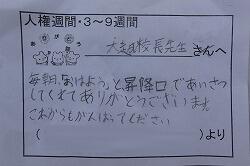 人権週間・3～9週間
ありがとう
校長先生さんへ
毎朝、「おはよう」と昇降口であいさつ
してくれてありがとうございます。
これからもがんばってください
(　　　　　)より